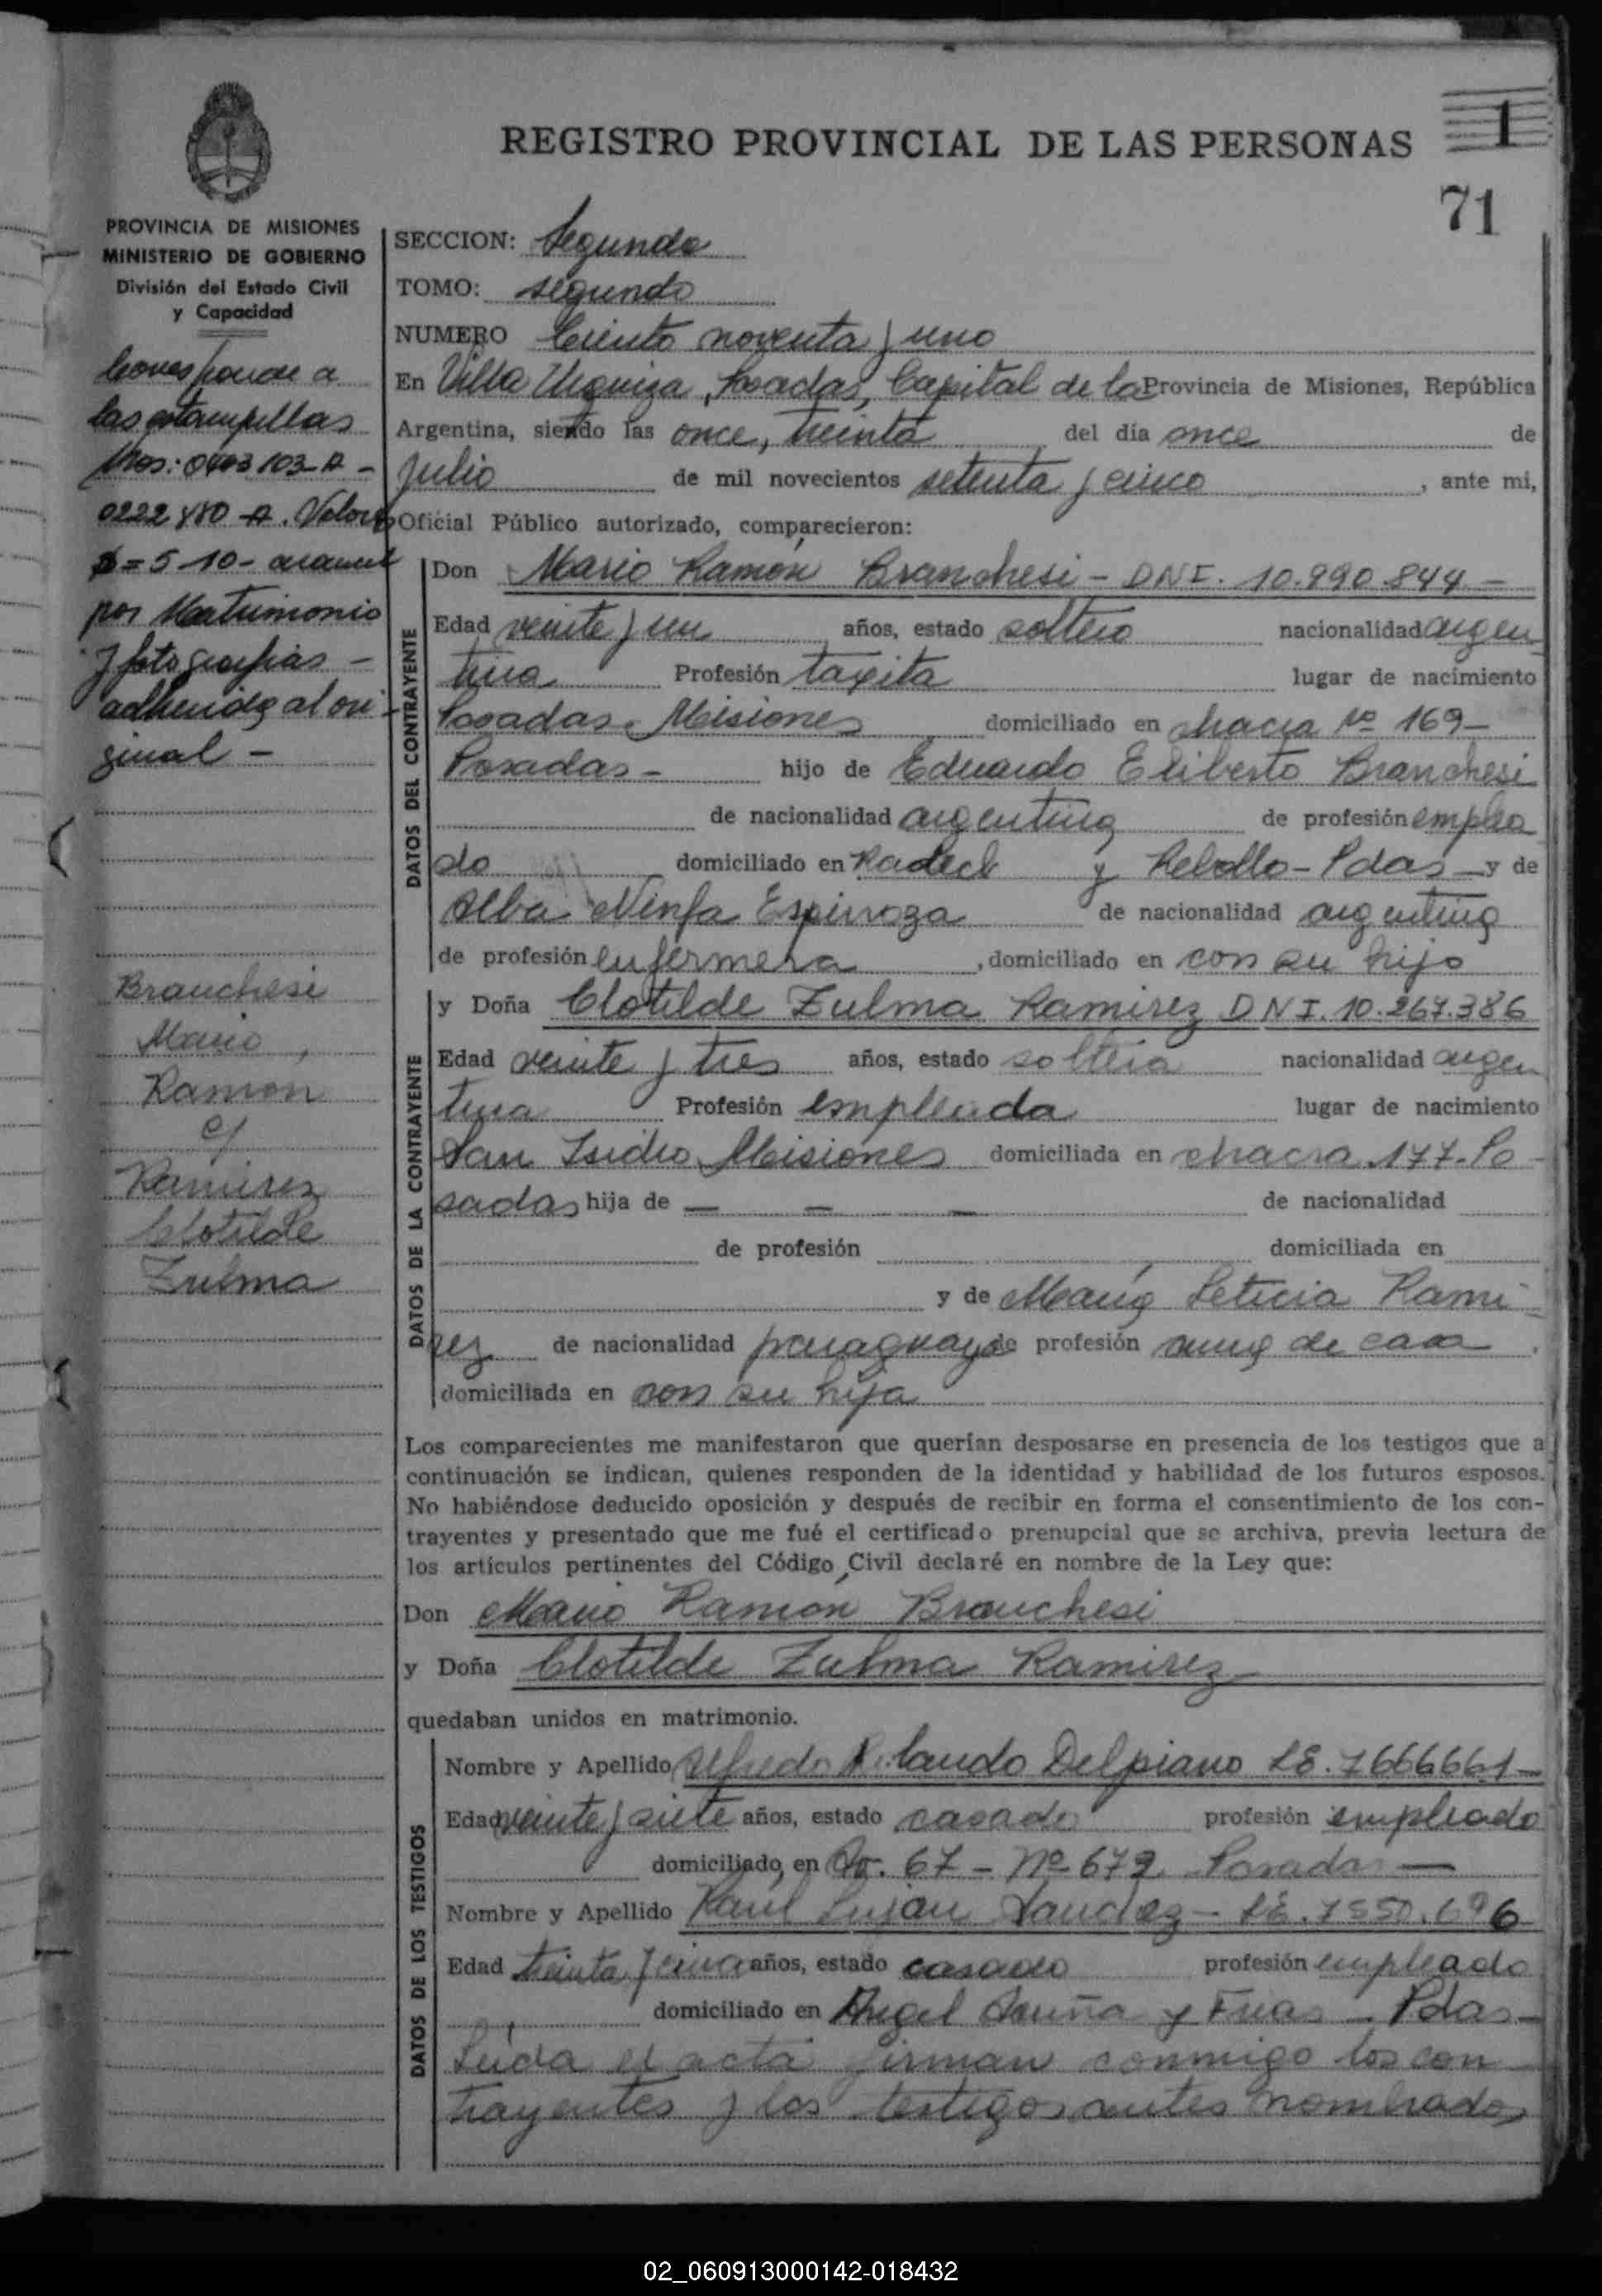 REGISTRO PROVINCIAL DE LAS PERSONAS
1
71
PROVINCIA DE MISIONES
MINISTERIO DE GOBIERNO
División del Estado Civil
y Capacidad
Corresponde a
las estampillas
Nros: 0403103-A-
0222880-A. Valor
$=5 10- arancel
por Matrimonio
y fotografias-
adheridas al ori-
ginal-
Branchesi
Mario,
Ramón
c/
Ramirez
Clotilde
Zulma
SECCION: Segunda
TOMO: segundo
NUMERO Ciento noventa y uno
En Villa Urquiza, Posadas, Capital de la Provincia de Misiones, República
Argentina, siendo las once, treinta del día once de
Julio de mil novecientos setenta y cinco, ante mi,
Oficial Público autorizado, comparecieron:
DATOS DEL CONTRAYENTE
Don Mario Ramón Branchesi - DNI. 10.890.844-
Edad veinte y un años, estado soltero nacionalidad argen
tina Profesión taxita lugar de nacimiento
Posadas. Misiones domiciliado en chacra Nº 169-
Posadas- hijo de Eduardo Eliberto Branchesi
de nacionalidad argentina de profesión emplea
do domiciliado en Radeck y Rebollo-Pdas- y de
Alba Ninfa Espinoza de nacionalidad argentina
de profesión enfermera, domiciliado en con su hijo
DATOS DE LA CONTRAYENTE
y Doña Clotilde Zulma Ramirez DNI. 10.267.386
Edad veinte y tres años, estado soltera nacionalidad argen
tina Profesión empleada lugar de nacimiento
San Isidro, Misiones domiciliada en chacra 177-Po-
sadas hija de - - - de nacionalidad
de profesión domiciliada en
y de María Leticia Rami-
rez de nacionalidad paraguaya de profesión ama de casa.
domiciliada en con su hija
Los comparecientes me manifestaron que querían desposarse en presencia de los testigos que a
continuación se indican, quienes responden de la identidad y habilidad de los futuros esposos.
No habiéndose deducido oposición y después de recibir en forma el consentimiento de los con-
trayentes y presentado que me fué el certificado prenupcial que se archiva, previa lectura de
los artículos pertinentes del Código Civil declaré en nombre de la Ley que:
Don Mario Ramón Branchesi
y Doña Clotilde Zulma Ramirez
quedaban unidos en matrimonio.
DATOS DE LOS TESTIGOS
Nombre y Apellido Alfredo Rolando Delpiano LE. 7666661-
Edad veinte y siete años, estado casado profesión empleado
domiciliado en Av. 67 - Nº 672 Posadas-
Nombre y Apellido Raúl Luján Sanchez - LE. 7550.696
Edad treinta y cinco años, estado casado profesión empleado
domiciliado en Angel Acuña y Frias - Pdas-
Leída el acta firman conmigo los con
trayentes y los testigos antes nombrados
02_060913000142-018432